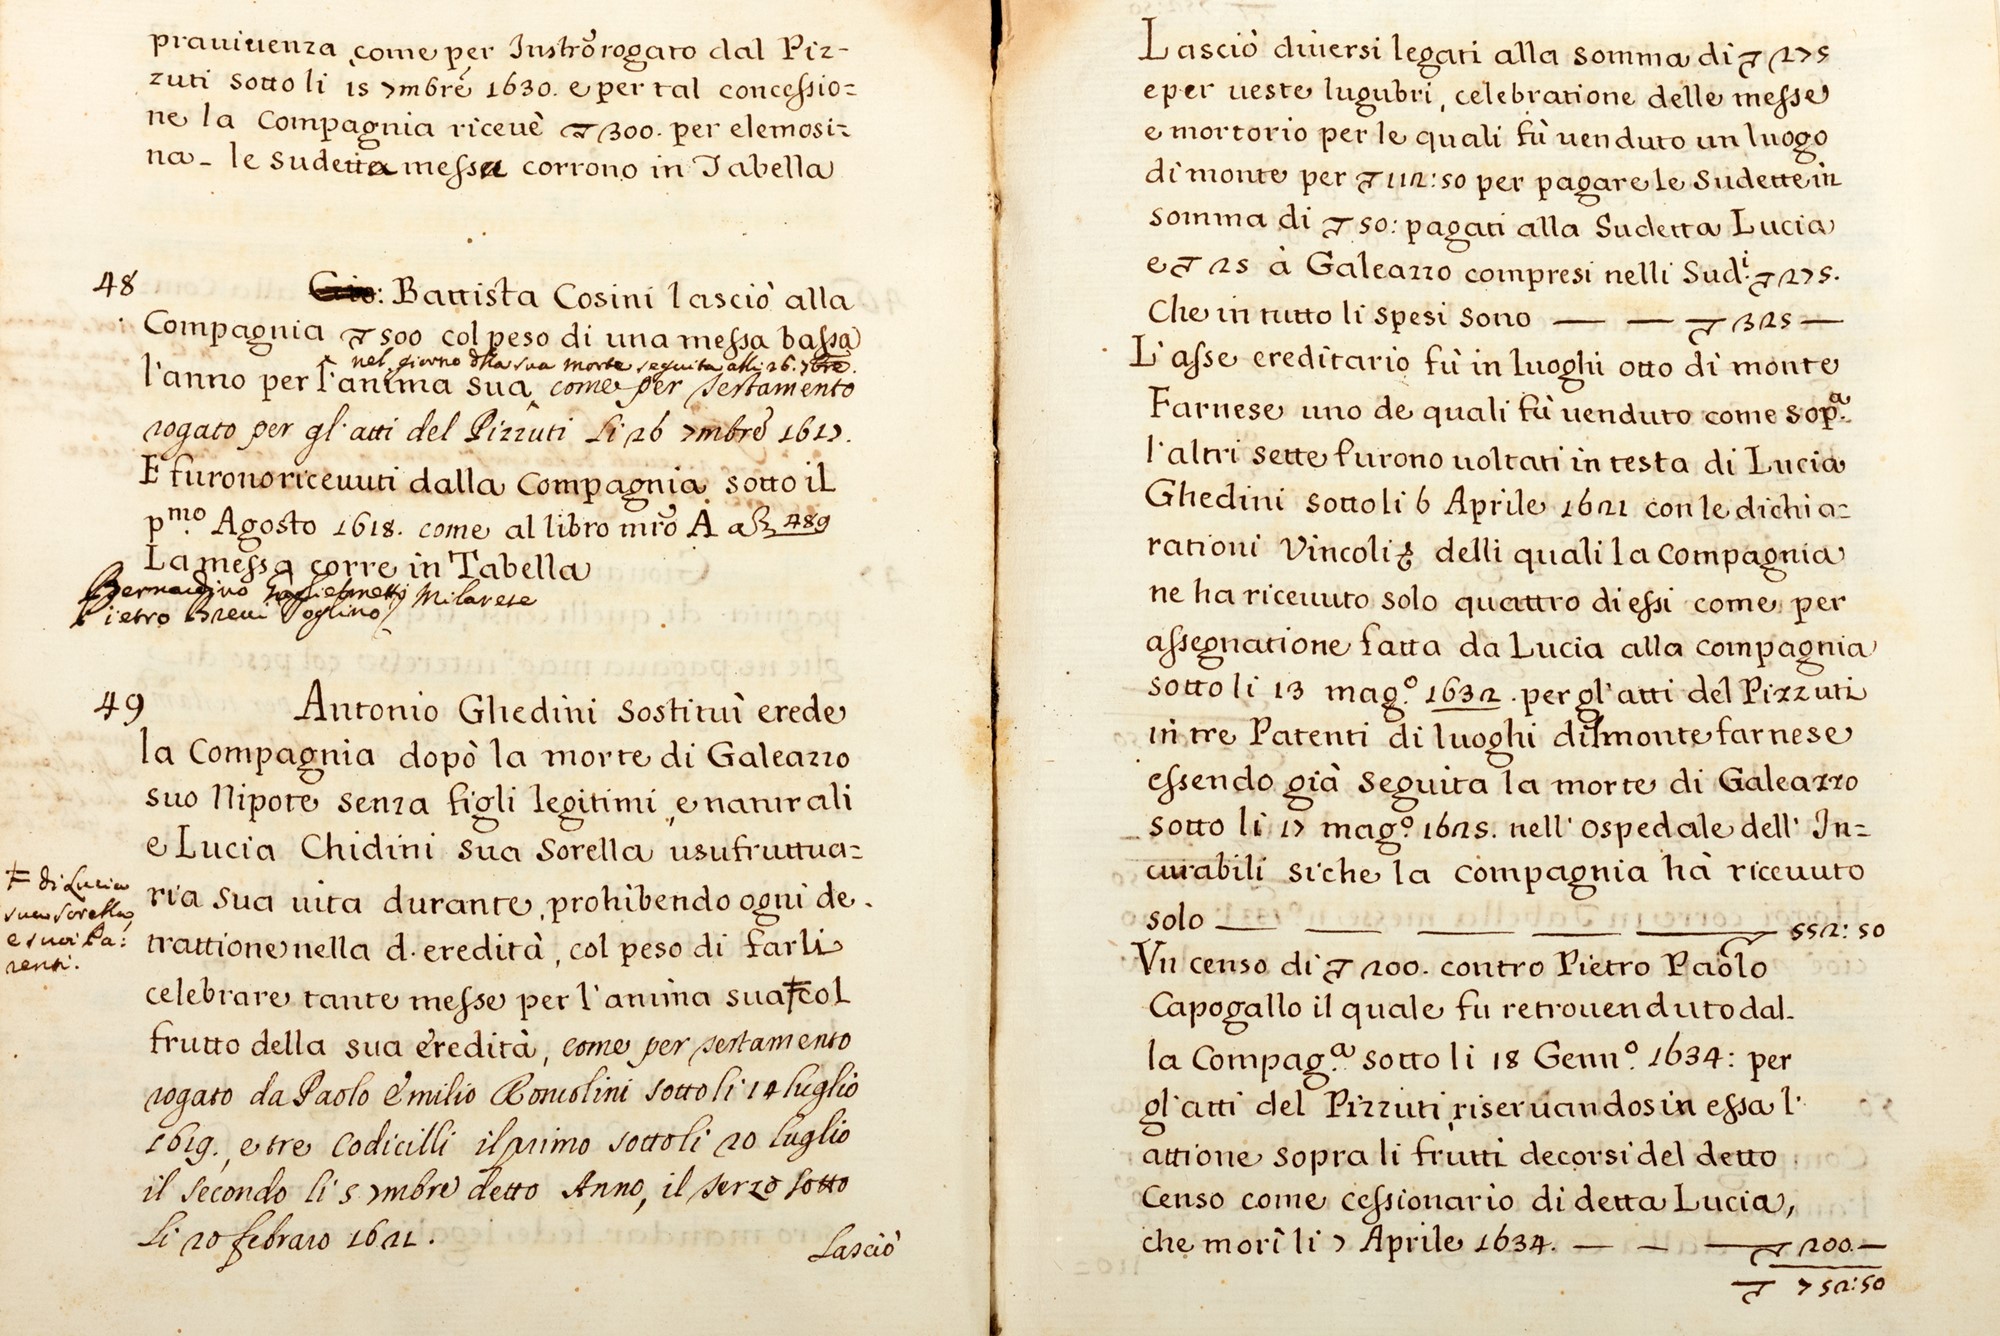 prauiuenza come per Instrõ rogato dal Piz-
zuti sotto li 15 7mbrẽ 1630. e per tal concessio=
ne la Compagnia riceuè ∇ 300. per elemosi=
na - le sudetta messa corrono in Tabella
48 Gio: Battista Cosini lasciò alla
Compagnia ∇ 500 col peso di una messa bassa
nel giorno della sua morte seguita alli 26. 7bre.
l'anno per l'anima sua, come per testamento
rogato per gl'atti del Pizzuti li 26 7mbrẽ 1617.
E furono riceuuti dalla Compagnia sotto il
pmo. Agosto 1618. come al libro mrõ A a 489
La messa corre in Tabella
Bernardino Milanese
Pietro Breui
49 Antonio Ghedini sostituì erede
la Compagnia dopò la morte di Galeazzo
suo Nipote senza figli legitimi, e naturali
e Lucia Chidini sua sorella usufruttua=
ria sua uita durante, prohibendo ogni de.
trattione nella d. eredità, col peso di farli
celebrare tante messe per l'anima sua ╪ col
╪ di Lucia
sua sorella,
e suoi Pa:
renti.
frutto della sua eredità, come per testamento
rogato da Paolo Emilio Romolini sotto li 14 luglio
1619., e tre Codicilli il primo sotto li 20 luglio
il secondo li 5 7mbrẽ detto Anno, il terzo sotto
li 20 febraro 1621.
Lasciò
Lasciò diuersi legati alla somma di ∇ 275
e per ueste lugubri, celebratione delle messe
e mortorio per le quali fù uenduto un luogo
di monte per ∇ 112:50 per pagare le sudette in
somma di ∇ 50: pagati alla Sudetta Lucia
e ∇ 25 à Galeazzo compresi nelli Sud.i ∇ 275.
Che in tutto li spesi sono — — ∇ 325 —
L'asse ereditario fù in luoghi otto di monte
Farnese uno de quali fù uenduto come sop.a
l'altri sette furono uoltati in testa di Lucia
Ghedini sotto li 6 Aprile 1621 con le dichia=
rationi Vincoli & delli quali la Compagnia
ne ha riceuuto solo quattro di essi come per
assegnatione fatta da Lucia alla compagnia
sotto li 13 mag.o 1632. per gl'atti del Pizzuti
in tre Patenti di luoghi di monte farnese
essendo già seguita la morte di Galeazzo
sotto li 17 mag.o 1625. nell'ospedale dell'In=
curabili siche la compagnia hà riceuuto
solo — — — — — 552:50
Vn censo di ∇ 200. contro Pietro Paolo
Capogallo il quale fu retrouenduto dal.
la Compag.a sotto li 18 Genn.o 1634: per
gl'atti del Pizzuti, riseruandosi in essa l'
attione sopra li frutti decorsi del detto
Censo come cessionario di detta Lucia,
che morì li 7 Aprile 1634. — — — ∇ 200 —
∇ 752:50